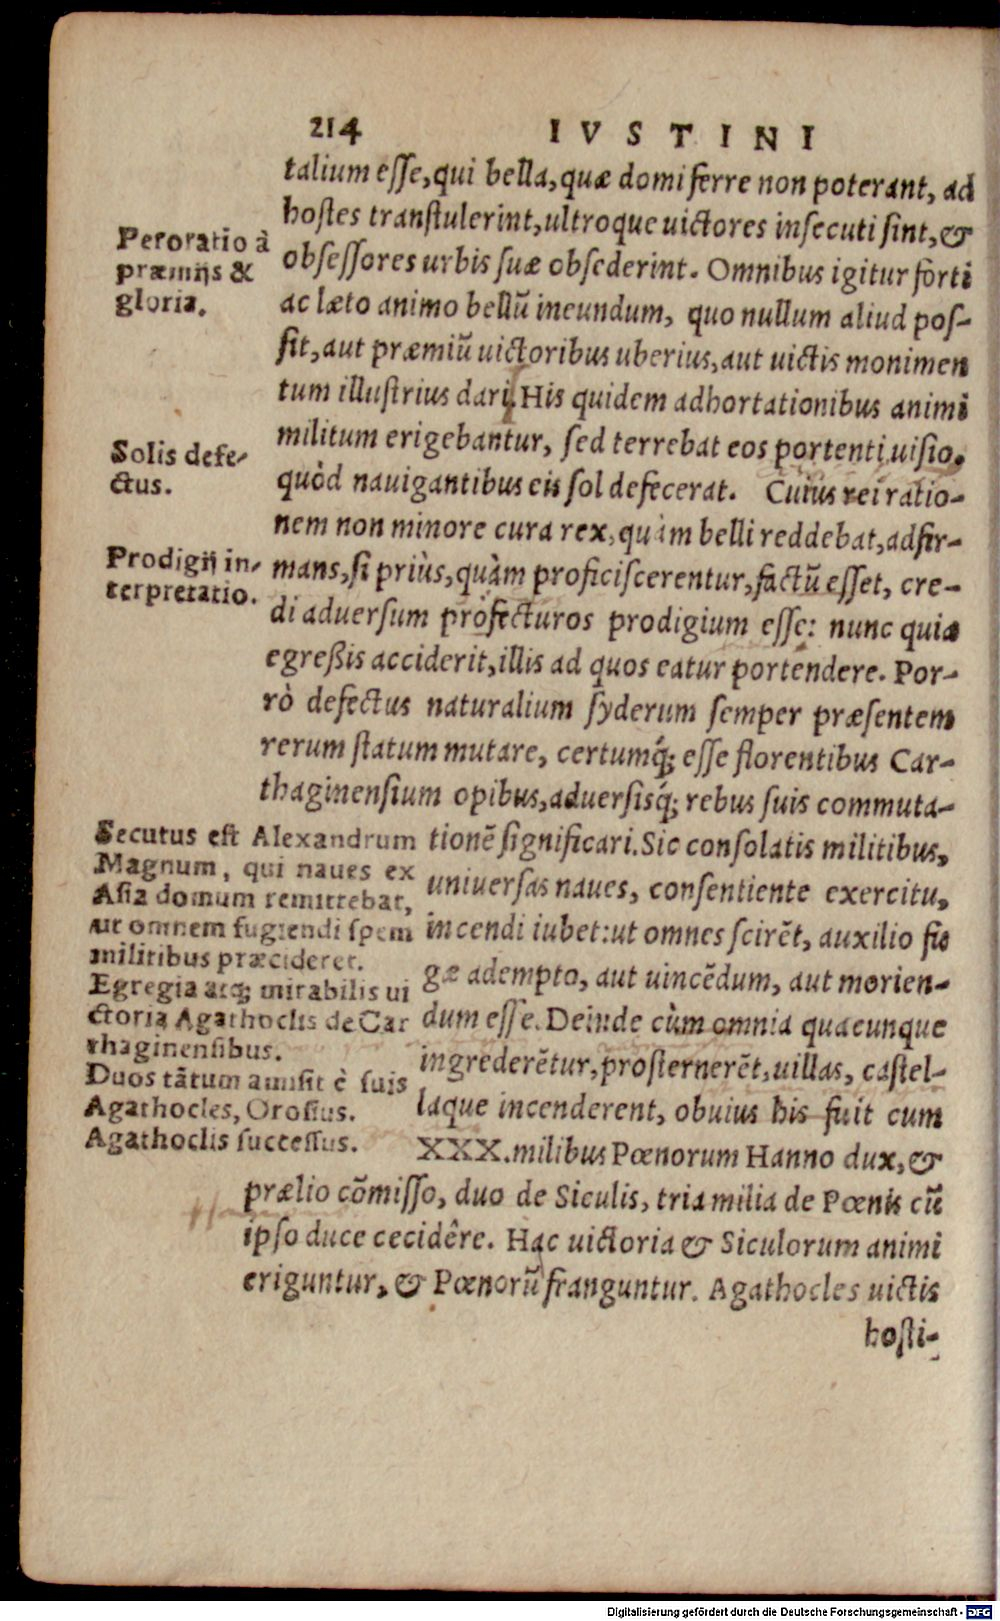 214 IVSTINI
talium eſſe, qui bella, quæ domi ferre non poterant, ad
hoſtes tranſtulerint, ultroque uictores inſecuti ſint, &
obſeſſores urbis ſuæ obſederint. Omnibus igitur forti
ac læto animo bellū ineundum, quo nullum aliud poſ-
ſit, aut præmiū uictoribus uberius, aut uictis monimen
tum illuſtrius dari. His quidem adhortationibus animi
militum erigebantur, ſed terrebat eos portenti uiſio,
quòd nauigantibus eis ſol defecerat. Cuius rei ratio-
nem non minore cura rex, quàm belli reddebat, adfir-
mans, ſi priùs, quàm proficiſcerentur, factū eſſet, cre-
di aduerſum profecturos prodigium eſſe: nunc quia
egreßis acciderit, illis ad quos eatur portendere. Por-
rò defectus naturalium ſyderum ſemper præſentem
rerum ſtatum mutare, certumq́; eſſe florentibus Car-
thaginenſium opibus, aduerſisq́; rebus ſuis commuta-
tionē ſignificari. Sic conſolatis militibus,
uniuerſas naues, conſentiente exercitu,
incendi iubet: ut omnes ſcirēt, auxilio fu
gæ adempto, aut uincēdum, aut morien-
dum eſſe. Deinde cùm omnia quacunque
ingrederētur, proſternerēt, uillas, caſtel-
laque incenderent, obuius his fuit cum
XXX. milibus Pœnorum Hanno dux, &
prælio cōmiſſo, duo de Siculis, tria milia de Pœnis cū
ipſo duce cecidêre. Hac uictoria & Siculorum animi
eriguntur, & Pœnorū franguntur. Agathocles uictis
hoſti-
Peroratio à
præmijs &
gloria.
Solis defe-
ctus.
Prodigij in-
terpretatio.
Secutus eſt Alexandrum
Magnum, qui naues ex
Aſia domum remittebat,
ut omnem fugiendi ſpem
militibus præcideret.
Egregia atq; mirabilis ui
ctoria Agathoclis de Car
thaginenſibus.
Duos tātum amiſit è ſuis
Agathocles, Oroſius.
Agathoclis ſucceſſus.
Digitalisierung gefördert durch die Deutsche Forschungsgemeinschaft - DFG